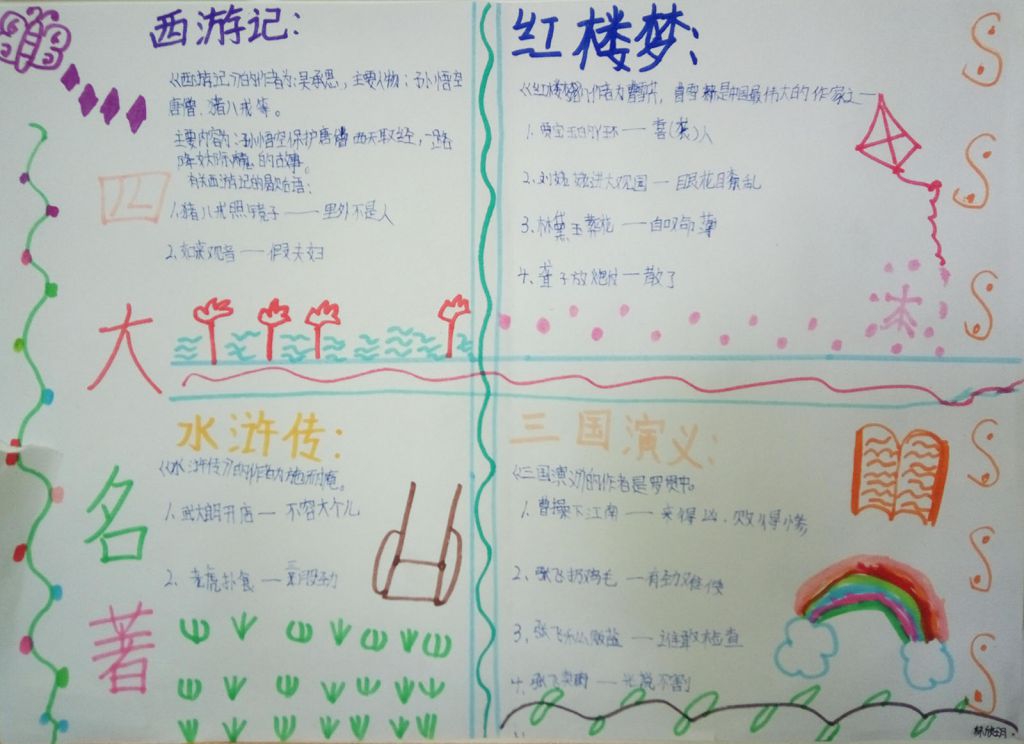 西游记:
《西游记》的作者为:吴承恩,主要人物:孙悟空
唐僧、猪八戒等。
主要内容为:孙悟空保护唐僧西天取经,一路
降妖除魔的故事。
有关西游记的歇后语:
1.猪八戒照镜子——里外不是人
2.如来观音——假夫妇
红楼梦:
《红楼梦》作者为曹雪芹,曹雪芹是中国最伟大的作家之一
1.贾宝玉的
2.刘姥姥进大观园——眼花目紊乱
3.林黛玉葬花——自叹命薄
4.聋子放炮仗——散了
四
大
名
著
水浒传:
《水浒传》的作者为施耐庵。
1.武大郎开店——不容大个儿
2.老虎扑食——三股劲
三国演义:
《三国演义》的作者是罗贯中。
1.曹操下江南——来得凶,败得惨
2.张飞扔鸡毛——有劲难使
3.张飞贩盐——谁敢检查
4.张飞卖肉——光说不割